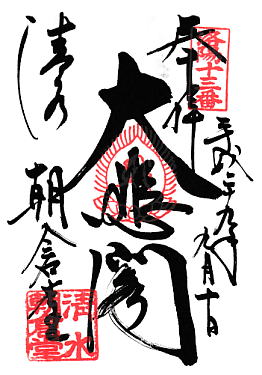 洛陽十三番
奉拝
平成二十九年九月十日
大悲閣
清水
朝倉堂
清水
朝倉堂